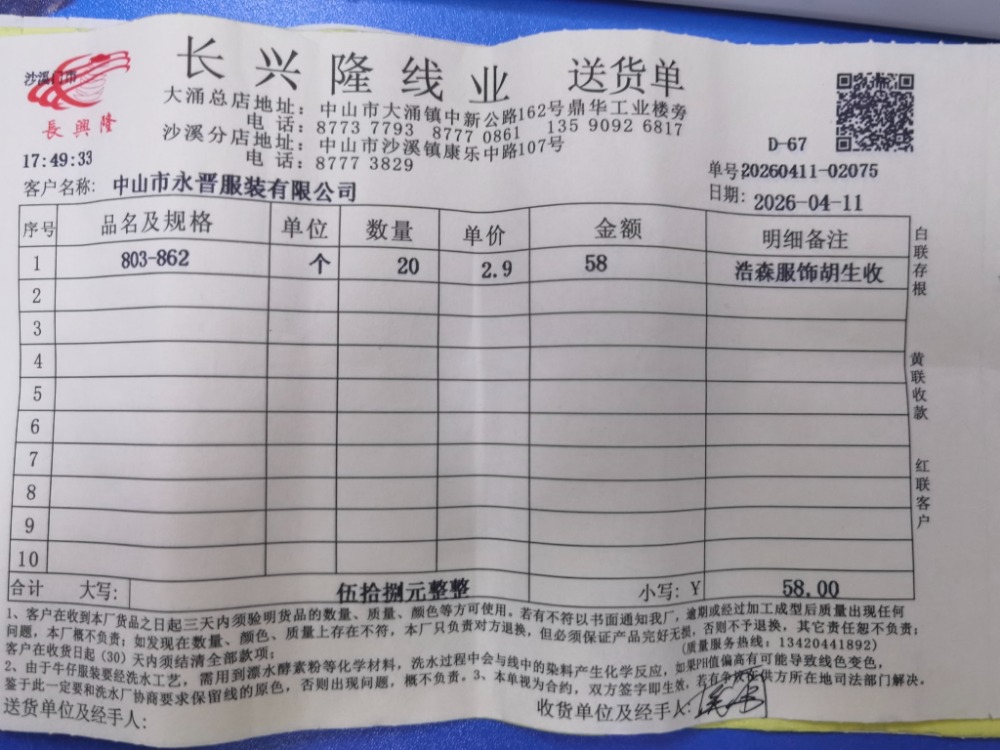 沙溪门市
長興隆
长兴隆线业 送货单
大涌总店地址：中山市大涌镇中新公路162号鼎华工业楼旁
电话：8773 7793 8777 0861 135 9092 6817
沙溪分店地址：中山市沙溪镇康乐中路107号
电话：8777 3829
D-67
17:49:33
单号20260411-02075
客户名称：中山市永晋服装有限公司
日期：2026-04-11
序号 品名及规格 单位 数量 单价 金额 明细备注
1 803-862 个 20 2.9 58 浩森服饰胡生收
2
3
4
5
6
7
8
9
10
白联存根
黄联收款
红联客户
合计 大写： 伍拾捌元整整 小写：Y 58.00
1、客户在收到本厂货品之日起三天内须验明货品的数量、质量、颜色等方可使用。若有不符以书面通知我厂，逾期或经过加工成型后质量出现任何
问题，本厂概不负责；如发现在数量、颜色、质量上存在不符，本厂只负责对方退换，但必须保证产品完好无损，否则不予退换，其它责任恕不负责；
客户在收货日起（30）天内须结清全部款项； （质量服务热线：13420441892）
2、由于牛仔服装要经洗水工艺，需用到漂水酵素粉等化学材料，洗水过程中会与线中的染料产生化学反应，如果PH值偏高有可能导致线色变色，
鉴于此一定要和洗水厂协商要求保留线的原色，否则出现问题，概不负责。3、本单视为合约，双方签字即生效，若有争议在供方所在地司法部门解决。
送货单位及经手人：
收货单位及经手人：